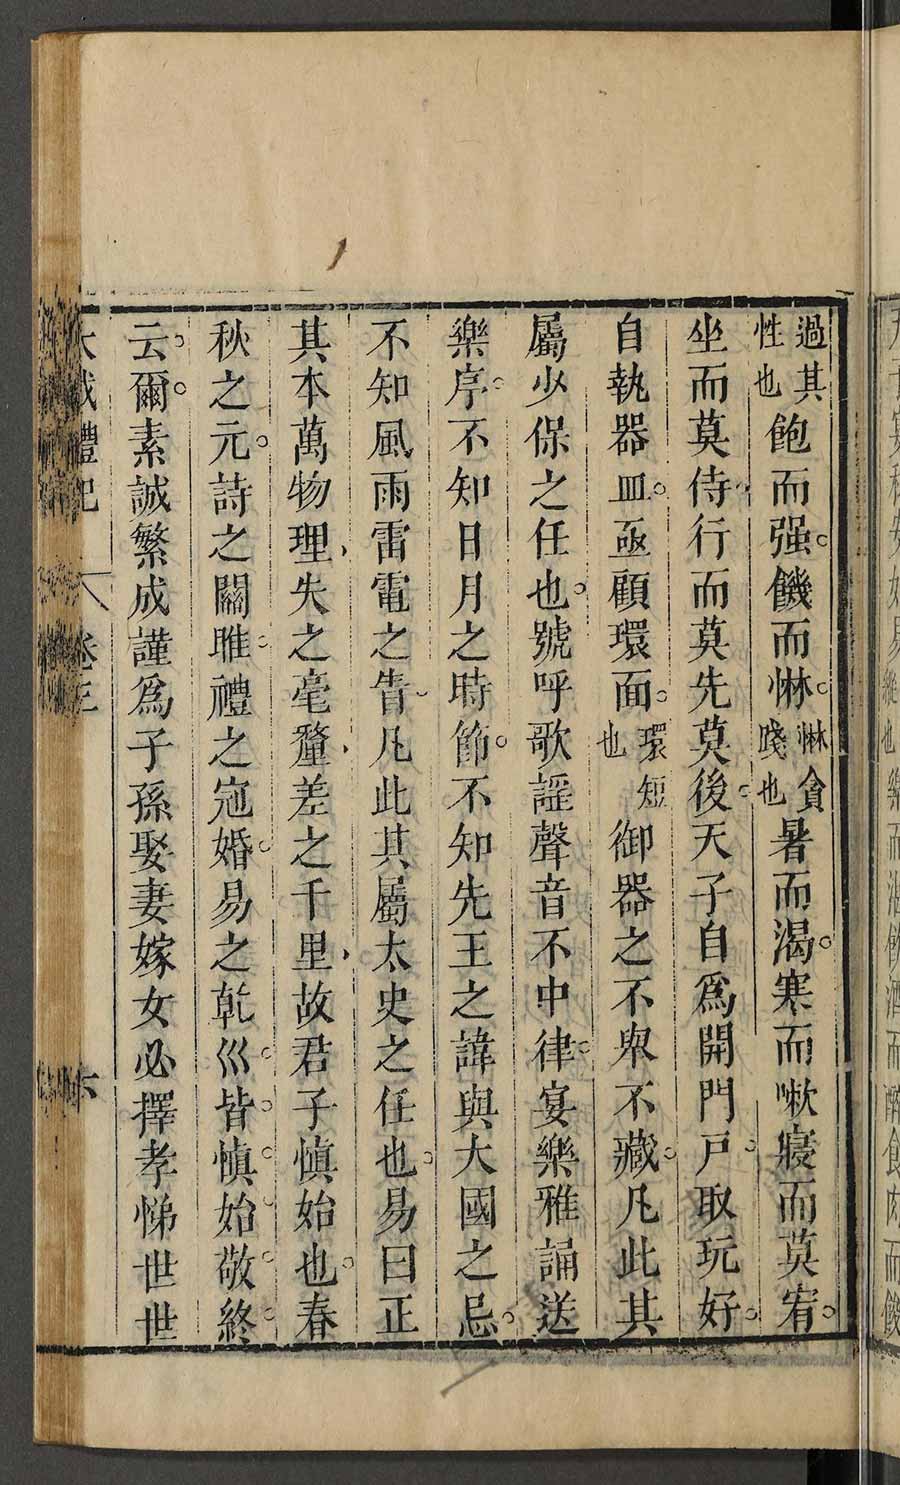 過其性也飽而强饑而惏惏貪賤也暑而渴寒而嗽寢而莫宥
坐而莫侍行而莫先莫後天子自爲開門戸取玩好
自執器皿亟顧環面環短也御器之不舉不藏凡此其
屬少保之任也號呼歌謡聲音不中律宴樂雅誦送
樂序不知日月之時節不知先王之諱與大國之忌
不知風雨雷電之眚凡此其屬太史之任也易曰正
其本萬物理失之毫釐差之千里故君子愼始也春
秋之元詩之關雎禮之冠婚易之乾巛皆愼始敬終
云爾素誠繁成謹爲子孫娶妻嫁女必擇孝悌世世
大戴禮記 卷三 六